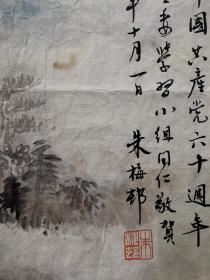 中國共產党六十週年
委学習小組同仁敬賀
年十月一日 朱梅邨
朱梅邨